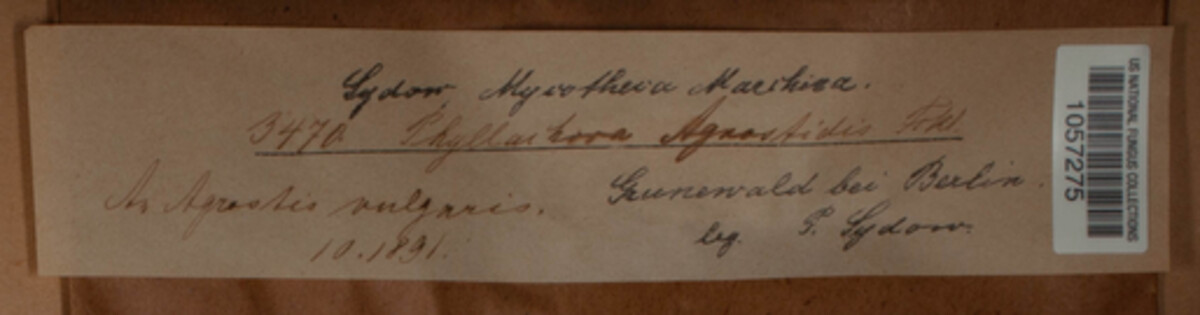 Sydow Mycotheca Marchica.
3470 Phyllachora Agrostidis Fckl
An Agrostis vulgaris. Grunewald bei Berlin.
10.1891. leg. P. Sydow.
US NATIONAL FUNGUS COLLECTIONS
1057275